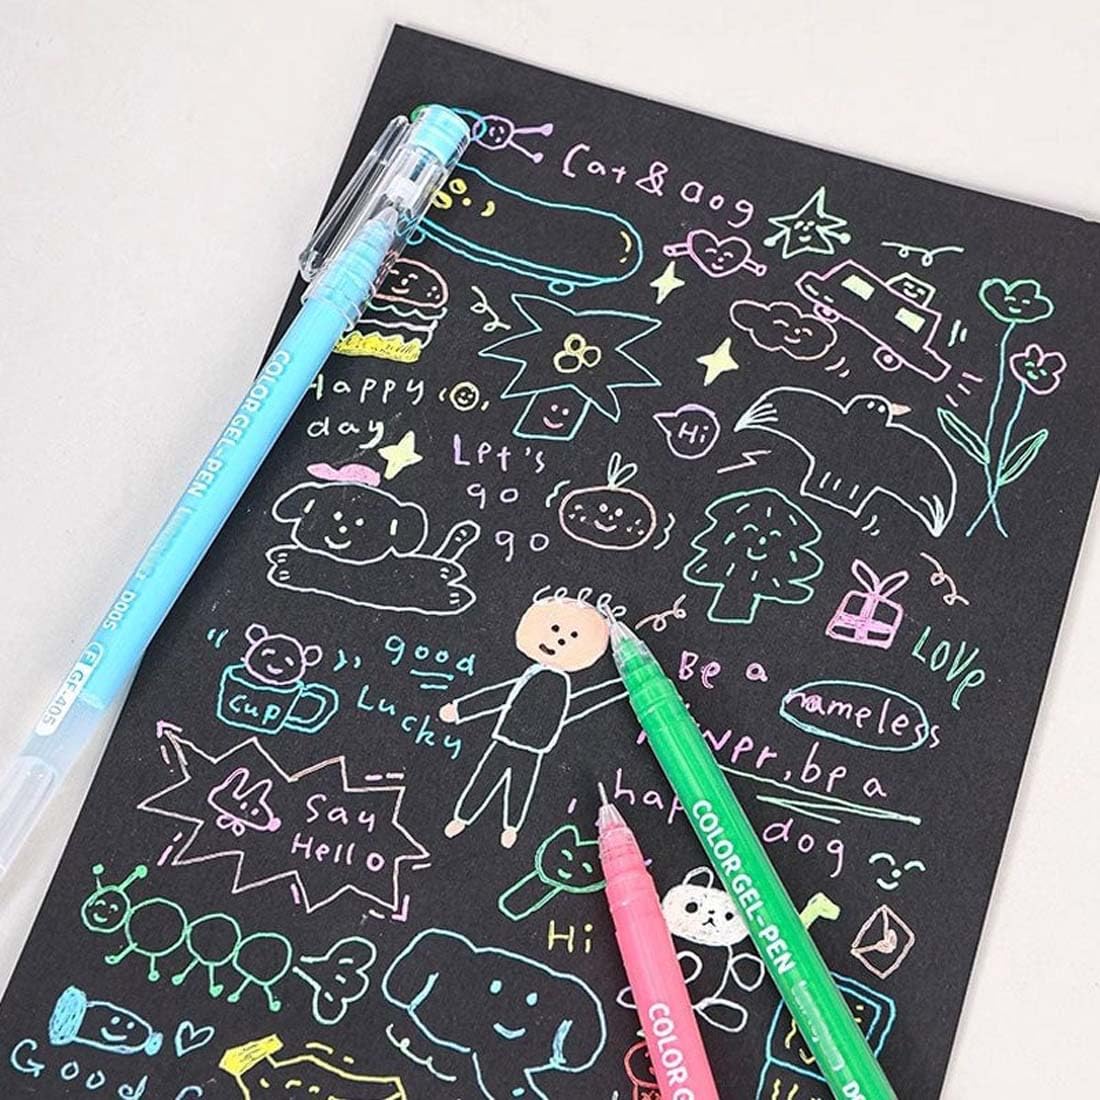 Cat & dog
Happy
day
Let's
go
go
Hi
LOVE
good
Lucky
cup
Be a
nameless
be a
happy
dog
Say
Hello
Hi
Good
COLOR GEL-PEN
D005
E GP-405
COLOR GEL-PEN
COLOR G